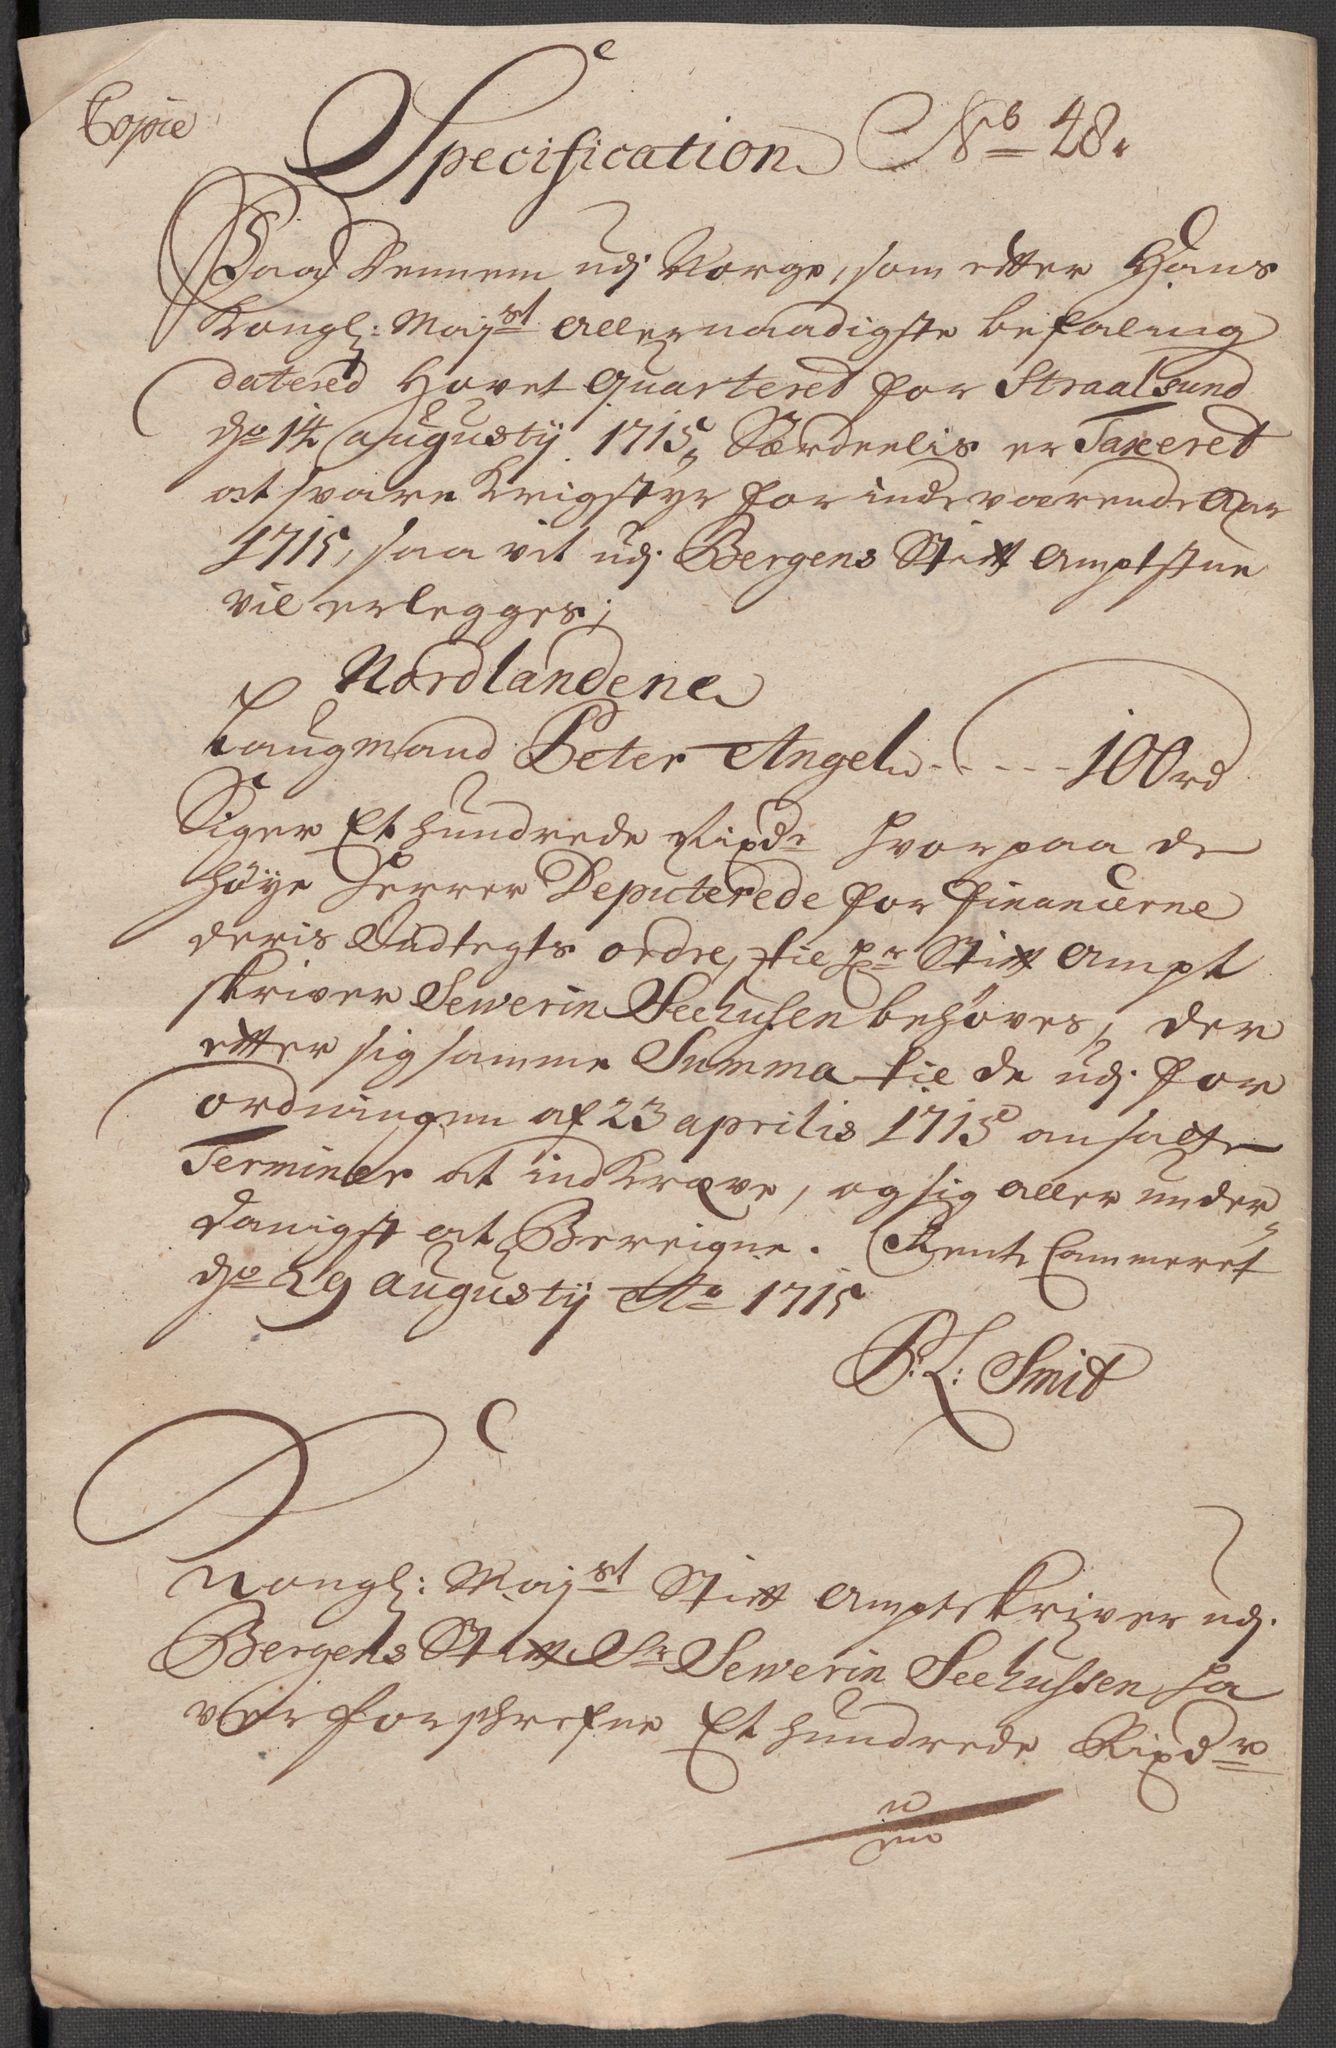 Copie
Specification No 48.
Paa Dennem udj Norge, som efter Hans
Kongl: Mayst Allernaadigste befaling
dateret Hovet Quarteret for Straalsund
dn 14 Augustij 1715, Særdeelis er Taxeret
at svare Krigstyr for indeværende Aar
1715, saa vit udj Bergens Stift Amptstue
vil erlegges;
Nordlandene
Laugmand Peter Angel - - - - 100 rd
Siger Et hundrede Rixdr hvorpaa de
høye Herrer Deputerede for Financerne
deris Udtegts ordre, til hr Stift Ampt
skriver Sewerin Seehusen behøves, der
efter sig samme Summa til de udj for
ordningen af 23 aprilis 1715 ansatte
Terminer at indkræve, og sig aller under„
danigst at Bereigne. Rente Cammeret
dn 29 Augustij Ao 1715
P: L: Smit
Kongl: Mayst Stift Amptskriver udj
Bergens Stift Sr Sewerin Seehussen ha
ver forschrefne Et hundrede Rixdr